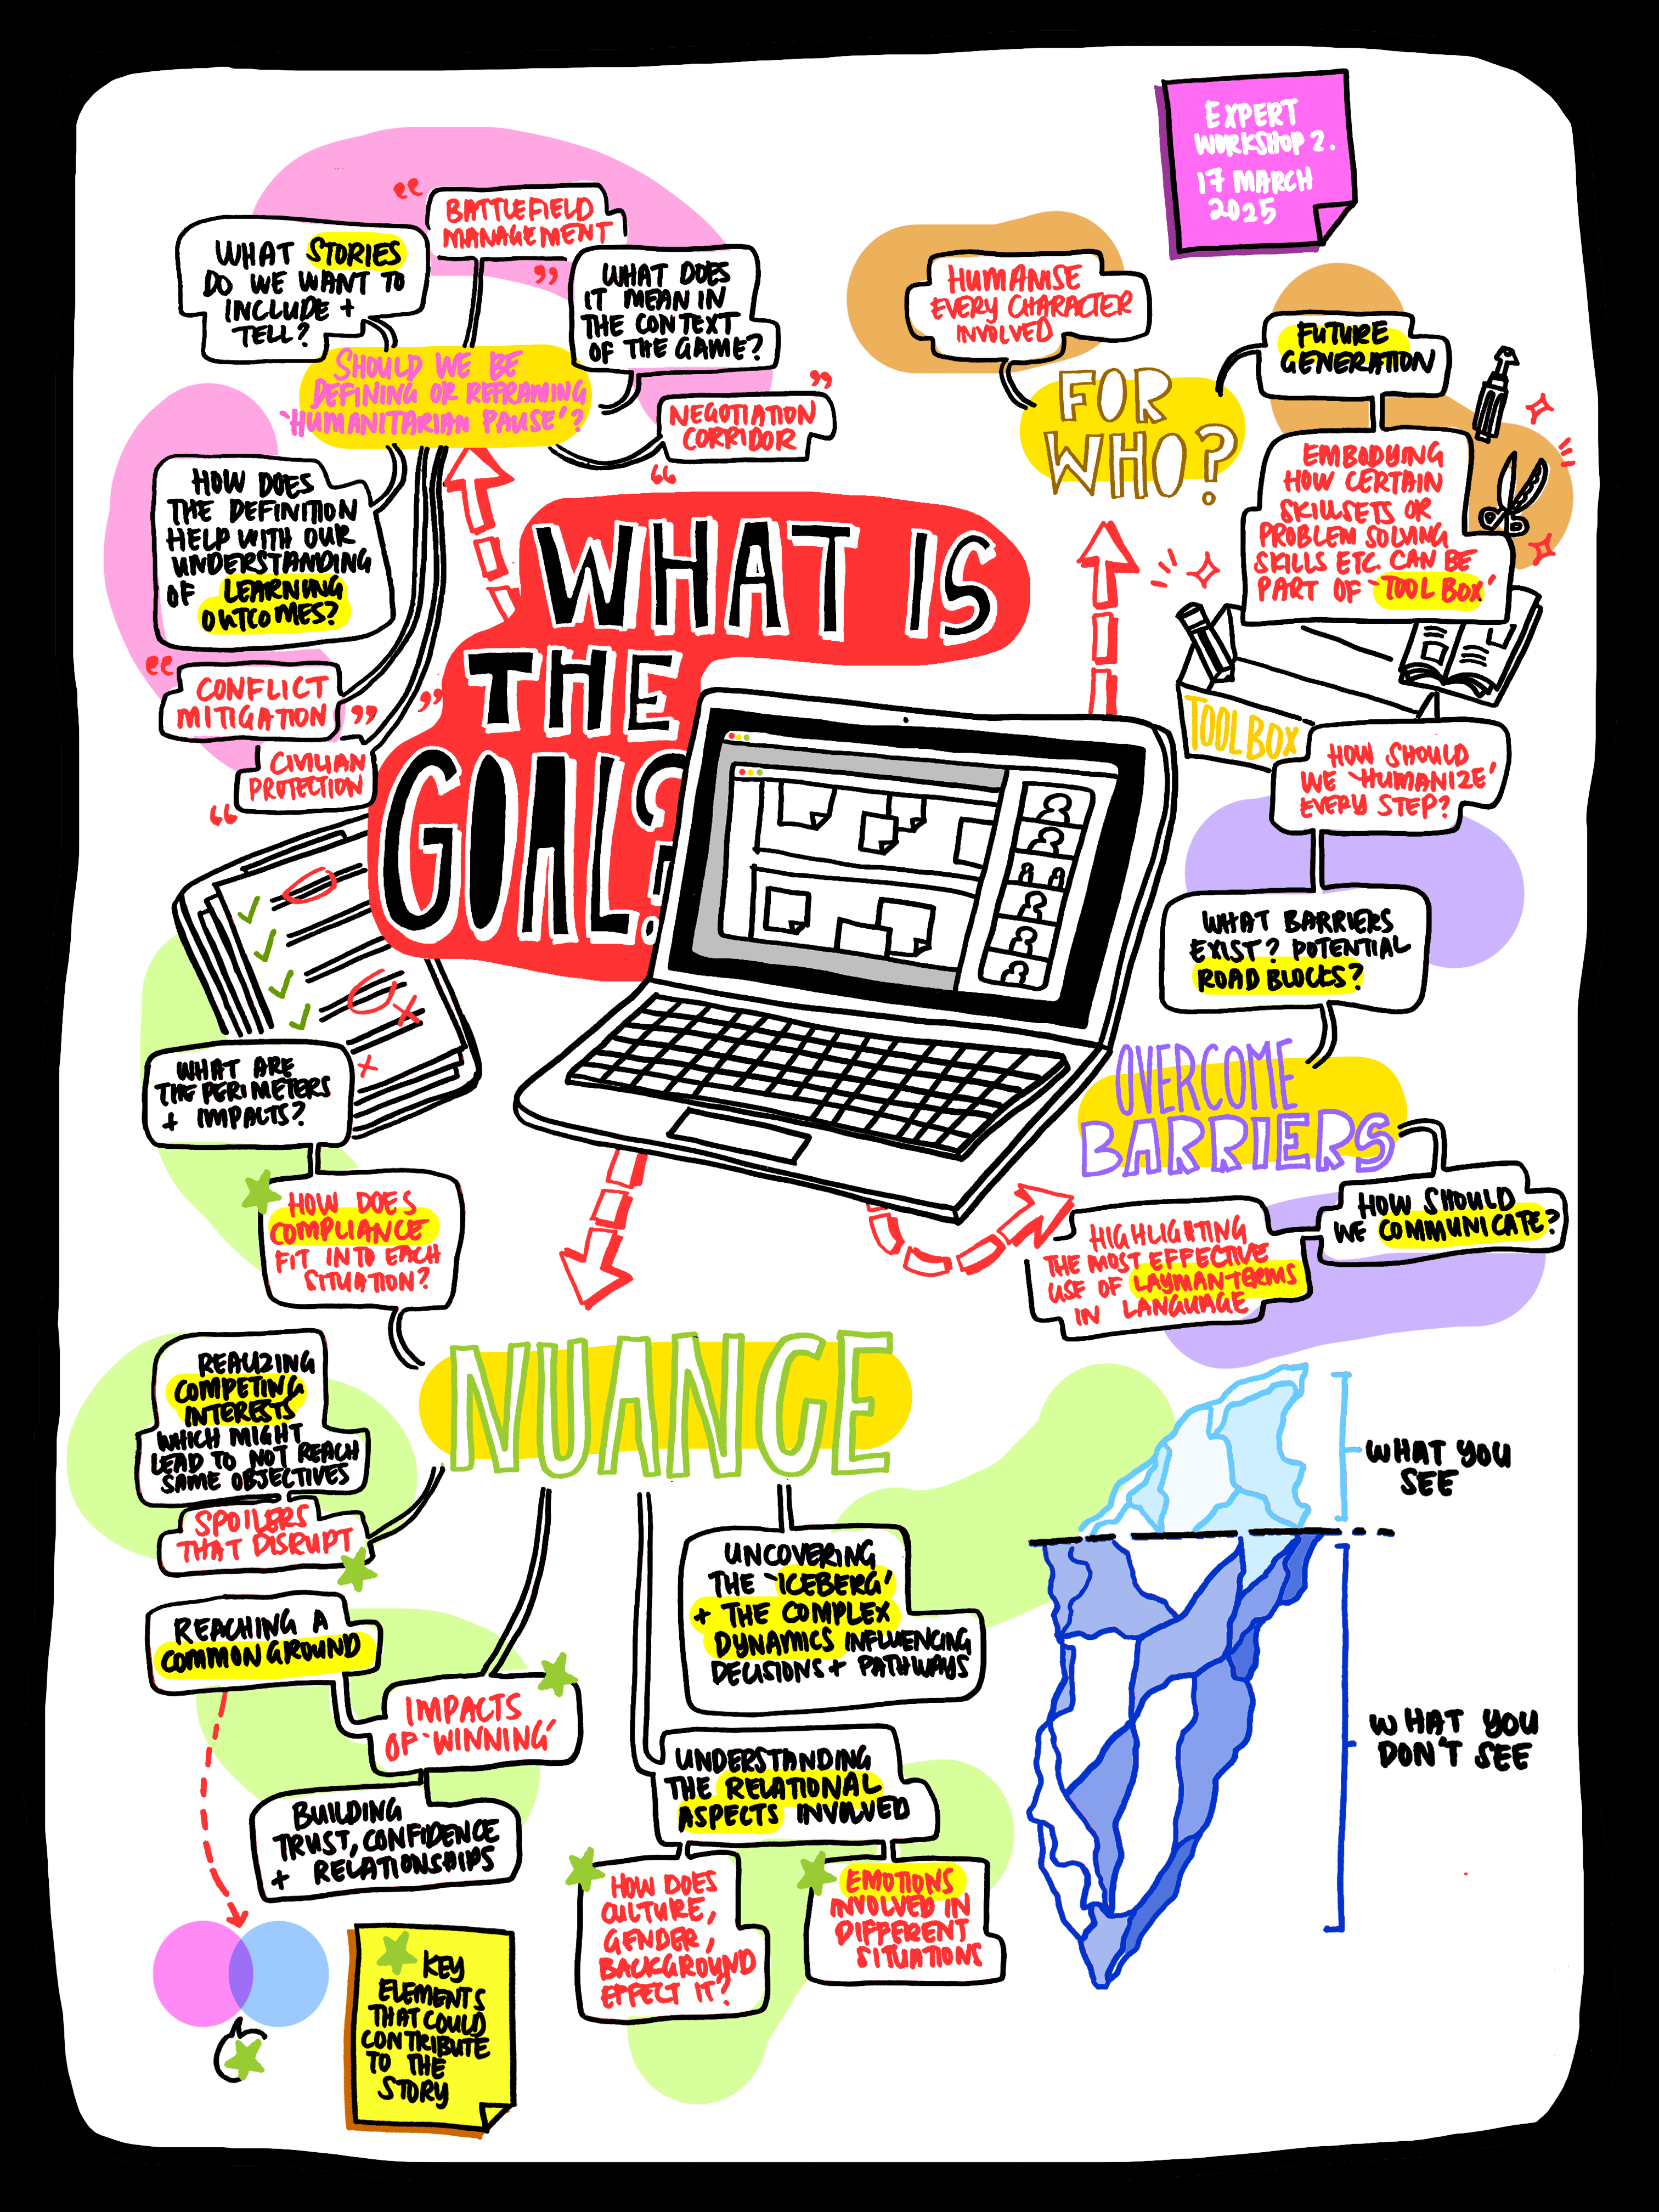 EXPERT
WORKSHOP 2.
17 MARCH
2025
"BATTLEFIELD
MANAGEMENT"
WHAT STORIES
DO WE WANT TO
INCLUDE +
TELL?
WHAT DOES
IT MEAN IN
THE CONTEXT
OF THE GAME?
SHOULD WE BE
DEFINING OR REFRAMING
'HUMANITARIAN PAUSE'?
"NEGOTIATION
CORRIDOR"
HOW DOES
THE DEFINITION
HELP WITH OUR
UNDERSTANDING
OF LEARNING
OUTCOMES?
"CONFLICT
MITIGATION"
"CIVILIAN
PROTECTION"
WHAT IS
THE
GOAL?
HUMANISE
EVERY CHARACTER
INVOLVED
FOR
WHO?
FUTURE
GENERATION
EMBODYING
HOW CERTAIN
SKILLSETS OR
PROBLEM SOLVING
SKILLS ETC. CAN BE
PART OF 'TOOL BOX'
TOOLBOX
HOW SHOULD
WE 'HUMANIZE'
EVERY STEP?
WHAT BARRIERS
EXIST? POTENTIAL
ROAD BLOCKS?
OVERCOME
BARRIERS
HOW SHOULD
WE COMMUNICATE?
HIGHLIGHTING
THE MOST EFFECTIVE
USE OF LAYMAN-TERMS
IN LANGUAGE
WHAT ARE
THE PERIMETERS
+ IMPACTS?
HOW DOES
COMPLIANCE
FIT INTO EACH
SITUATION?
NUANCE
REALIZING
COMPETING
INTERESTS
WHICH MIGHT
LEAD TO NOT REACH
SAME OBJECTIVES
SPOILERS
THAT DISRUPT
REACHING A
COMMON GROUND
IMPACTS
OF 'WINNING'
BUILDING
TRUST, CONFIDENCE
+ RELATIONSHIPS
UNCOVERING
THE 'ICEBERG'
+ THE COMPLEX
DYNAMICS INFLUENCING
DECISIONS + PATHWAYS
UNDERSTANDING
THE RELATIONAL
ASPECTS INVOLVED
HOW DOES
CULTURE,
GENDER,
BACKGROUND
EFFECT IT?
EMOTIONS
INVOLVED IN
DIFFERENT
SITUATIONS
WHAT YOU
SEE
WHAT YOU
DON'T SEE
KEY
ELEMENTS
THAT COULD
CONTRIBUTE
TO THE
STORY